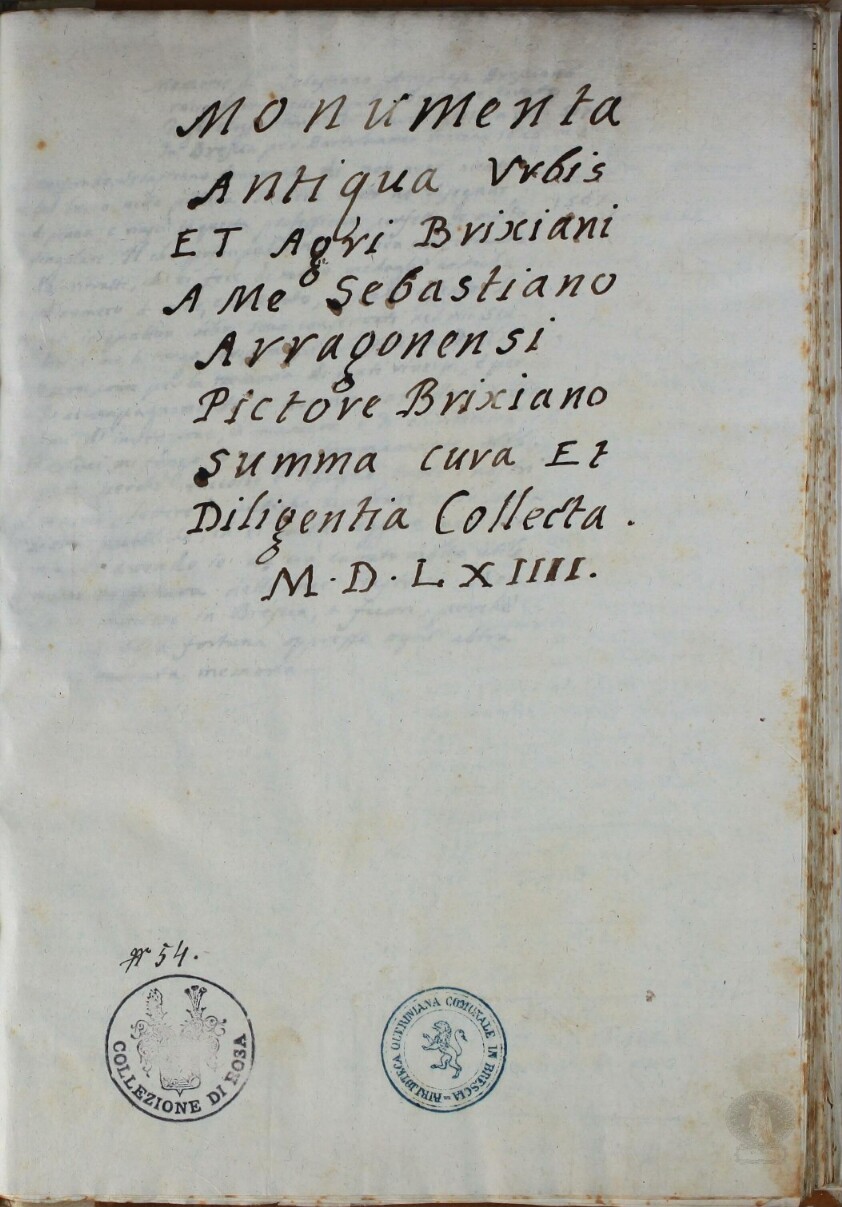 Monumenta
Antiqua Vrbis
ET Agri Brixiani
A Me Sebastiano
Arragonensi
Pictore Brixiano
Summa cura Et
Diligentia Collecta.
M·D·LXIIII.
54.
COLLEZIONE DI ROSA
BIBLIOTECA QUERINIANA COMUNALE IN BRESCIA